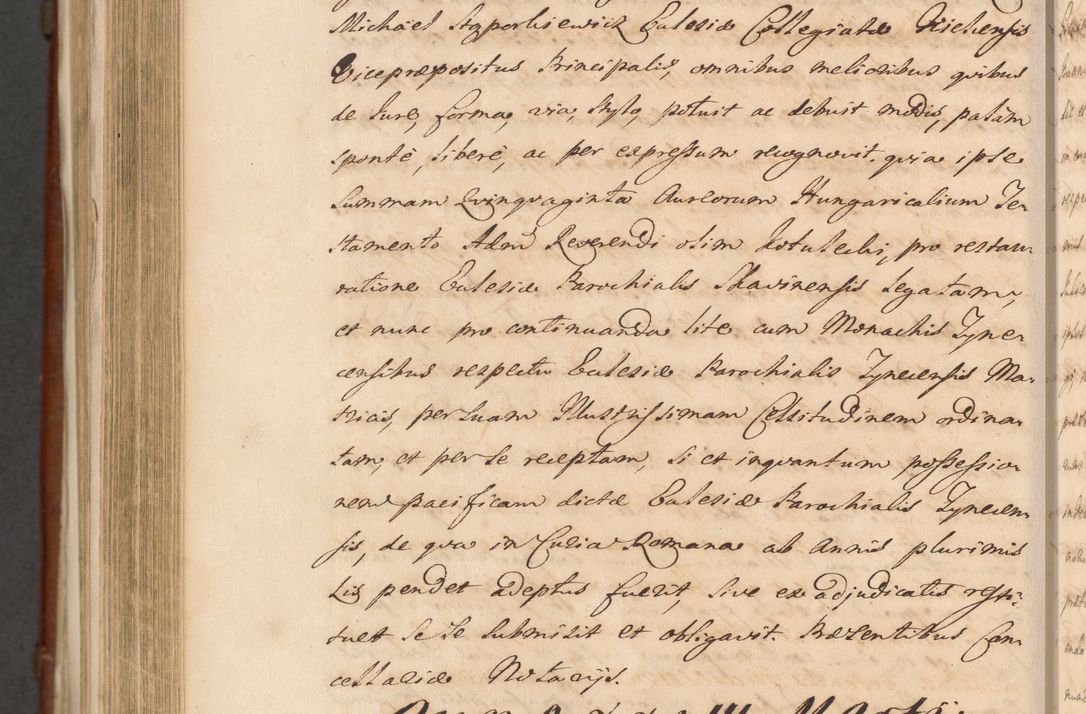 Michael Styporkiewicz Eulesiæ Collegiatæ Kielcensis
Vicepræpositus Principalis, omnibus melioribus quibus
de Jure, forma, via, Stylo, potuit ac debuit modis, palàm
spontè, liberè, ac per expressum recognovit, qvia ipse
Summam Qvinqvaginta Aureorum Hungaricalium Te-
stamento Adm Reverendi olim Kotulecki, pro restau-
ratione Ecclesiæ Parochialis Skavinensis legatam,
et nunc pro continuanda lite cum Monachis Tyne-
censibus respectu Ecclesiæ Parochialis Tynecensis Ma-
tricis, per Suam Illustrissimam Celsitudinem ordina-
tam, et per se receptam, si et inqvantum possessio-
nem pacificam dictæ Ecclesiæ Parochialis Tynecen-
sis, de qva in Curia Romana ab annis plurimis
Lis pendet adeptus fuerit, sive ex adjudicatis resti-
tuet se se submisit et obligavit. Præsentibus Can-
cellariæ Notarijs.